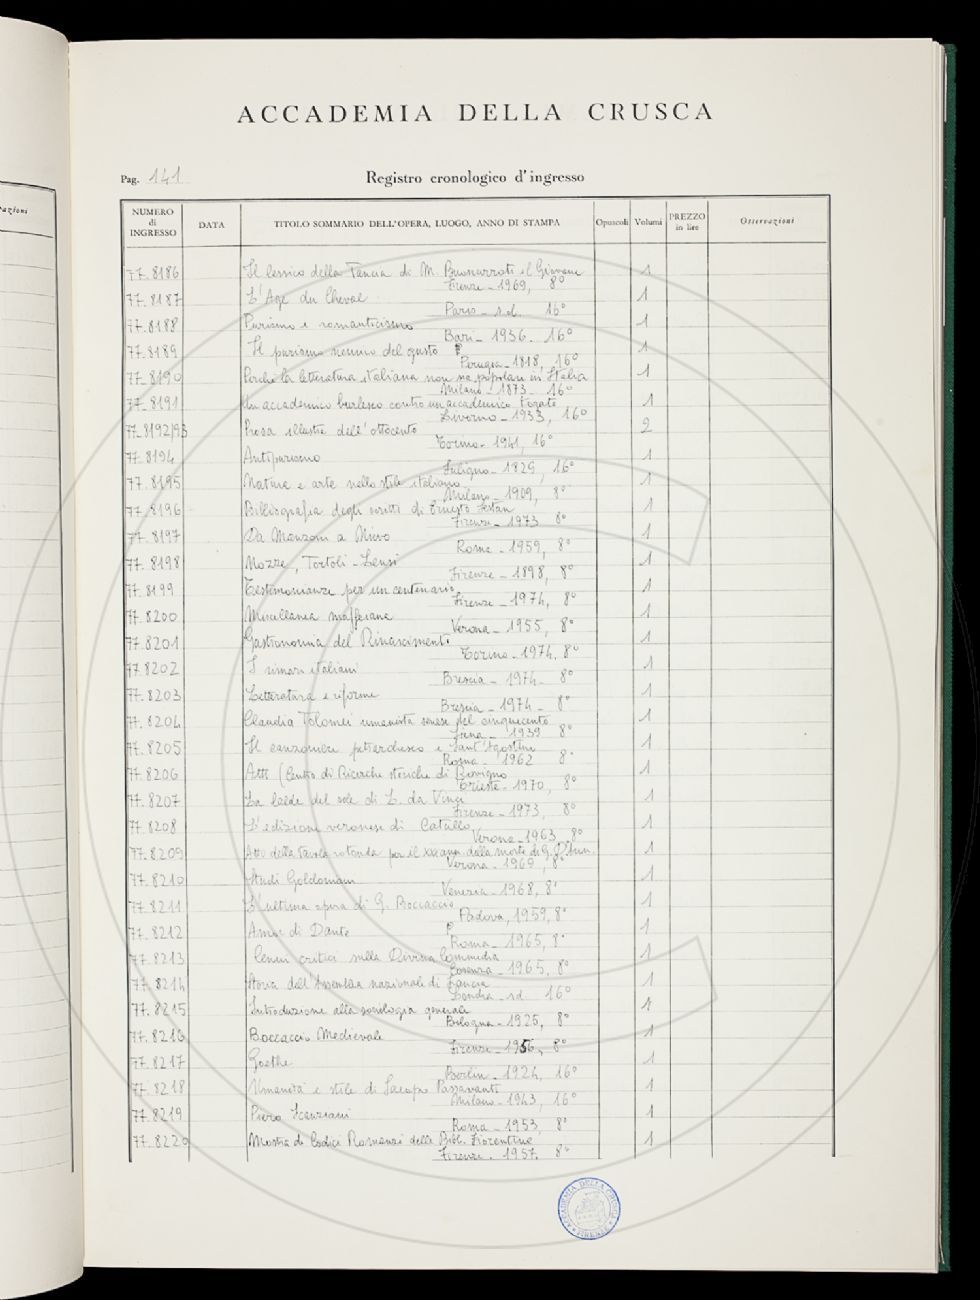 ACCADEMIA DELLA CRUSCA
Pag. 141
Registro cronologico d'ingresso
NUMERO di INGRESSO
DATA
TITOLO SOMMARIO DELL'OPERA, LUOGO, ANNO DI STAMPA
Opuscoli
Volumi
PREZZO in lire
Osservazioni
77-8186 Il lessico della Tancia di M. Buonarroti il Giovane 1
Firenze - 1969, 8°
77.8187 L'Age du Cheval 1
Paris - s.d. 16°
77.8188 Purismo e romanticismo 1
Bari - 1936. 16°
77.8189 Il purismo nemico del gusto 1
Perugia - 1818, 16°
77-8190 Perché la letteratura italiana non sia popolare in Italia 1
Milano - 1873 - 16°
77-8191 Un accademico burlesco contro un accademico togato 1
Livorno - 1933, 16°
77-8192/93 Prosa illustre dell'ottocento 2
Torino - 1941, 16°
77-8194 Antipurismo 1
Fuligno - 1829, 16°
77.8195 Natura e arte nello stile italiano 1
Milano - 1909, 8°
77-8196 Bibliografia degli scritti di Ernesto 1
Firenze - 1973 8°
77.8197 Da Manzoni a Nievo 1
Roma - 1959, 8°
77. 8198 Nozze, Tortoli - Sensi 1
Firenze - 1898, 8°
77-8199 Testimonianze per un centenario 1
Firenze - 1974, 8°
77.8200 Miscellanea maffeiana 1
Verona - 1955, 8°
77.8201 Gastronomia del Rinascimento 1
Torino - 1974, 8°
77.8202 I rimari italiani 1
Brescia - 1974 - 8°
77.8203 Letteratura e riforme 1
Brescia - 1974 - 8°
77.8204 Claudio Tolomei umanista senese del cinquecento 1
Siena - 1939 8°
77-8205 Il canzoniere petrarchesco e Sant'Agostino 1
Roma - 1962 8°
77.8206 Atti (Centro di Ricerche storiche di Rovigno 1
Trieste - 1970, 8°
77.8207 La laude del sole di L. da Vinci 1
Firenze - 1973, 8°
77.8208 L'edizione veronese di Catullo 1
Verona - 1963 8°
77.8209 Atti della tavola rotonda per il XXX ann. della morte di G. D'Ann. 1
Verona - 1969, 8°
77.8210 Studi Goldoniani 1
Venezia - 1968, 8°
77-8211 L'ultima opera di G. Boccaccio 1
Padova, 1959, 8°
77.8212 Amor di Dante 1
Roma - 1965, 8°
77.8213 Cenni critici sulla Divina Commedia 1
Cosenza - 1965, 8°
77. 8214 Storia dell'Assemblea nazionale di Francia 1
Londra - s.d. 16°
77. 8215 Introduzione alla sociologia generale 1
Bologna - 1925, 8°
77-8216 Boccaccio Medievale 1
Firenze - 1956, 8°
77-8217 Goethe 1
Berlin - 1924, 16°
77-8218 Umanità e stile di Jacopo Passavanti 1
Milano - 1943, 16°
77.8219 Piero 1
Roma - 1953, 8°
77.8220 Mostra di Codici Romanzi delle Bibl. Fiorentine 1
Firenze - 1957. 8°
ACCADEMIA DELLA CRUSCA
FIRENZE